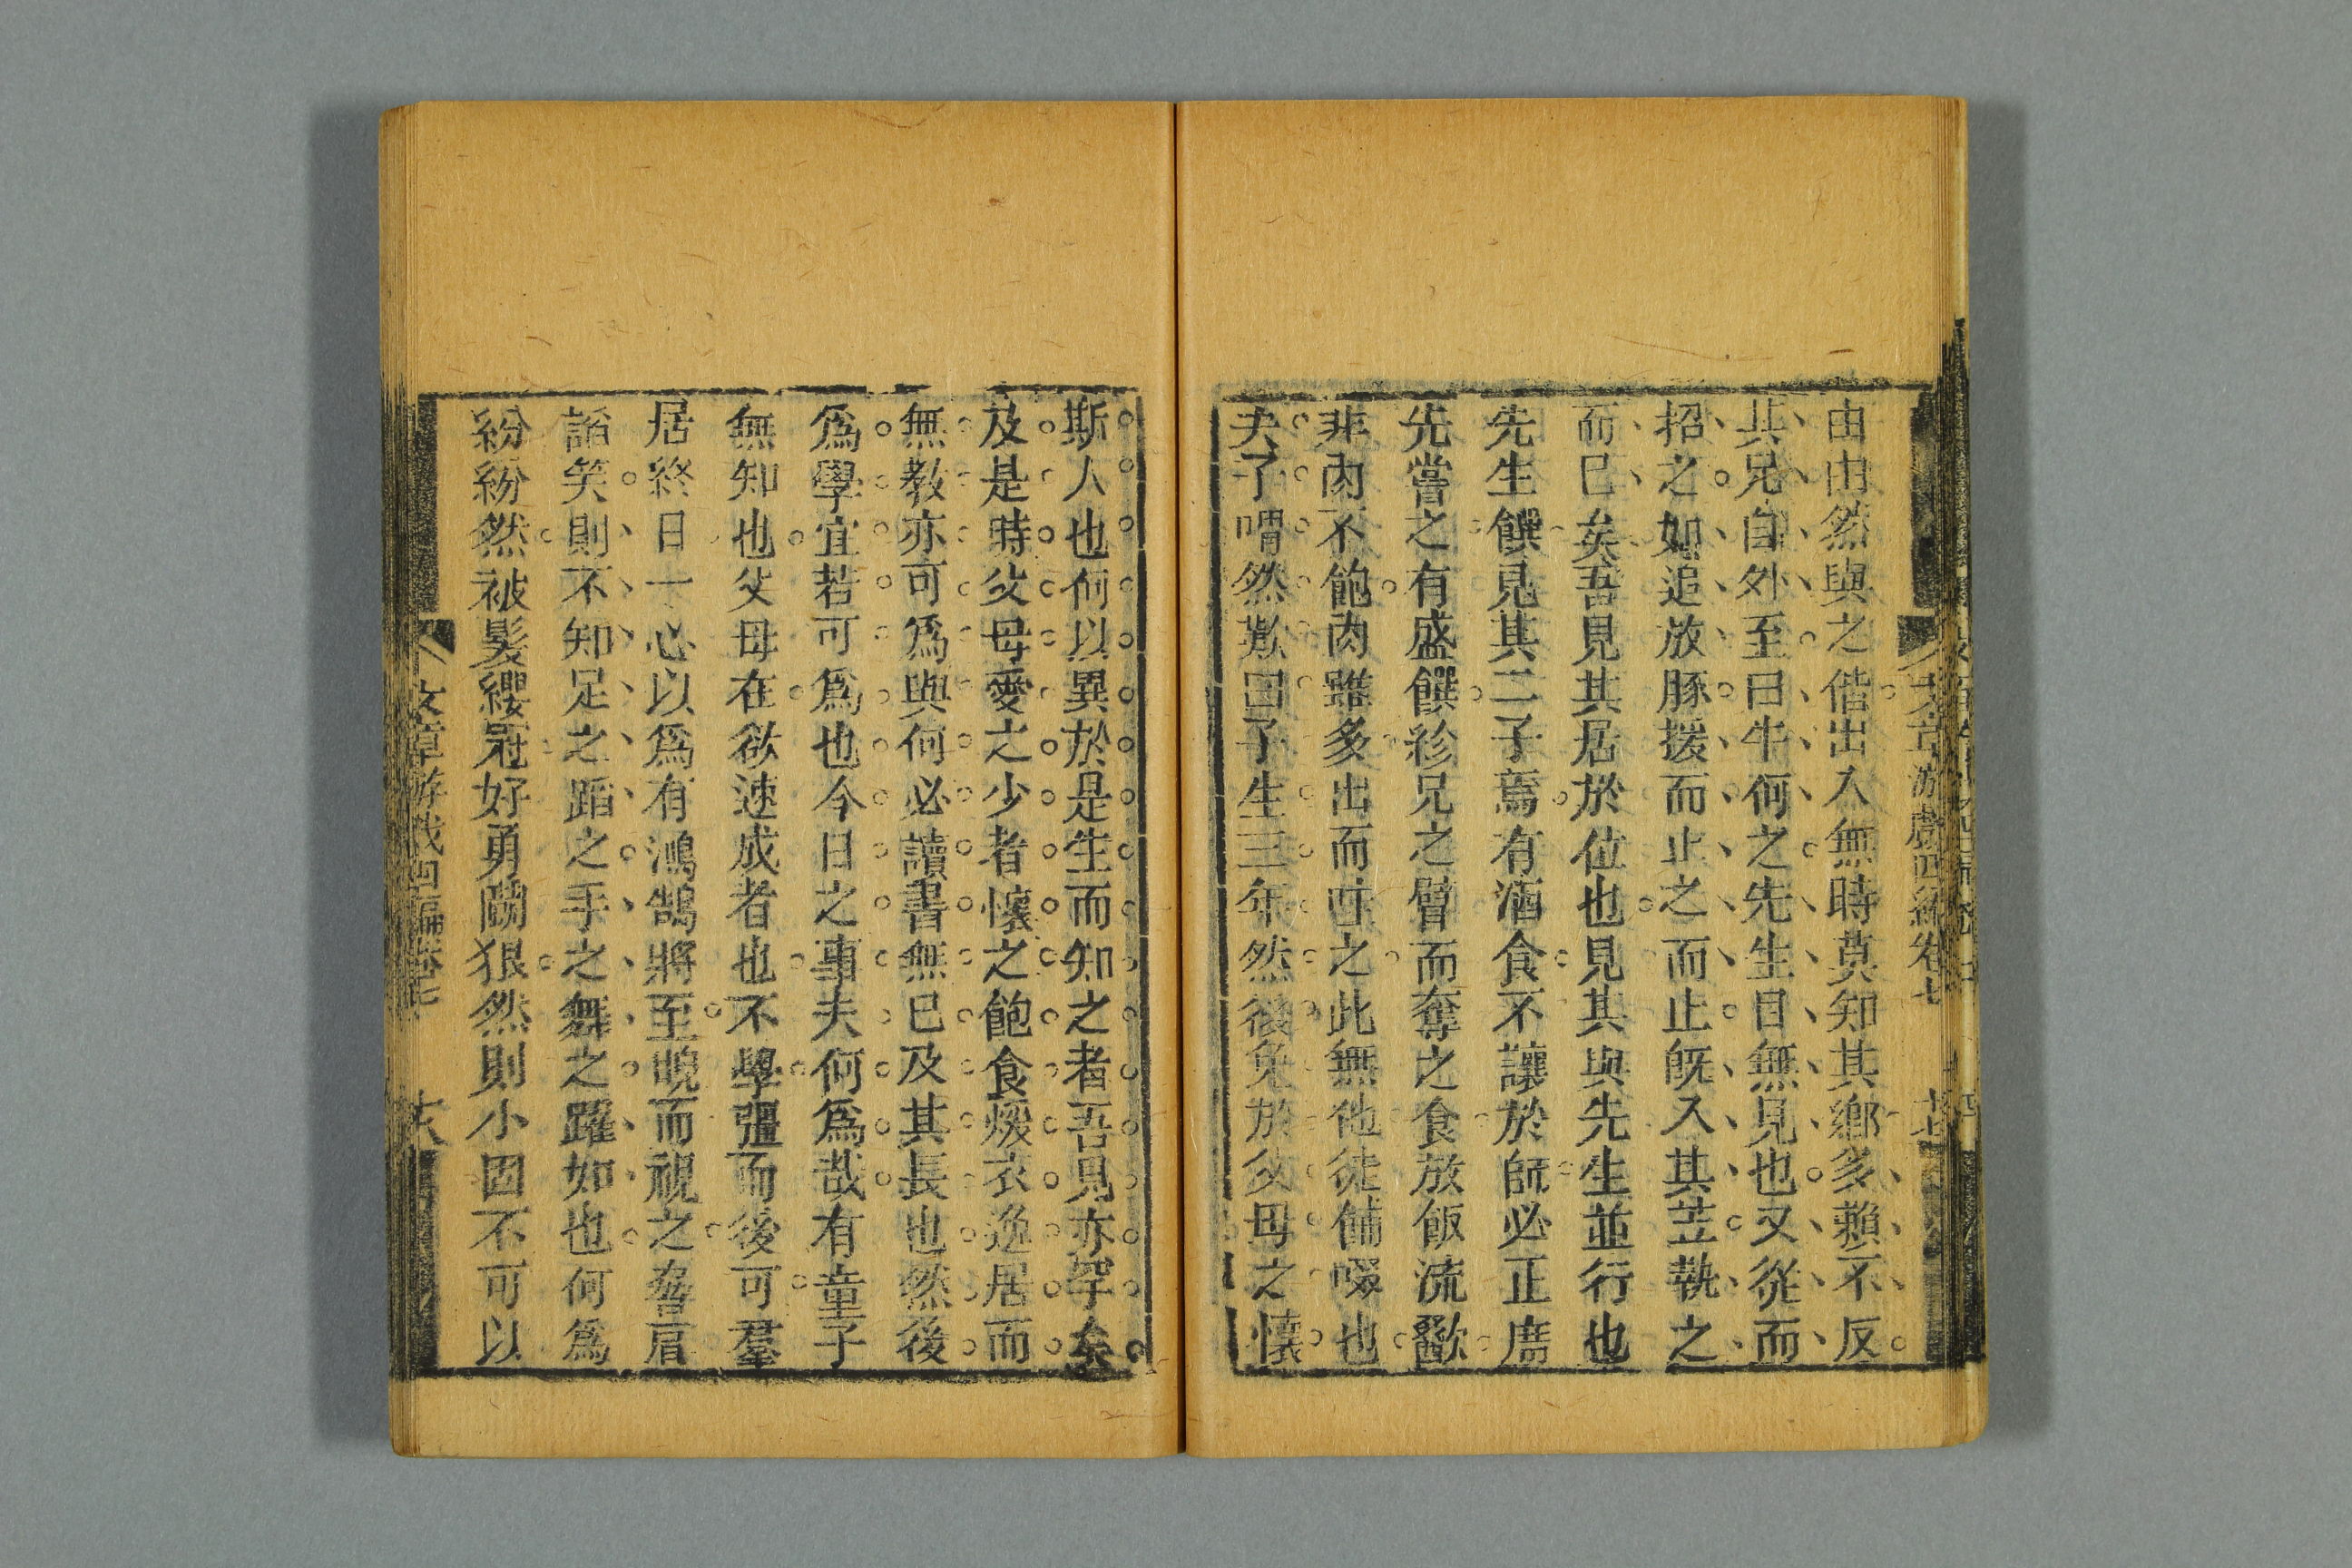 由由然與之偕出入無時莫知其鄉多賴不反
其兄自外至曰牛何之先生目無見也又從而
招之如追放豚援而止之而止既入其苙執之
而已矣吾見其居於位也見其與先生並行也
先生饌見其二子焉有酒食不讓於師必正席
先嘗之有盛饌紾兄之臂而奪之食放飯流歠
非肉不飽肉雖多出而哇之此無他徒餔啜也
夫子喟然歎曰子生三年然後免於父母之懷
文章游戲四編卷七
斯人也何以異於是生而知之者吾見亦罕矣
及是時父母愛之少者懷之飽食煖衣逸居而
無教亦可爲與何必讀書無已及其長也然後
爲學宜若可爲也今日之事夫何爲哉有童子
無知也父母在欲速成者也不學彊而後可羣
居終日一心以爲有鴻鵠將至睨而視之脅肩
諂笑則不知足之蹈之手之舞之躍如也何爲
紛紛然被髮纓冠好勇鬭狠然則小固不可以
文章游戲四編卷七
十八